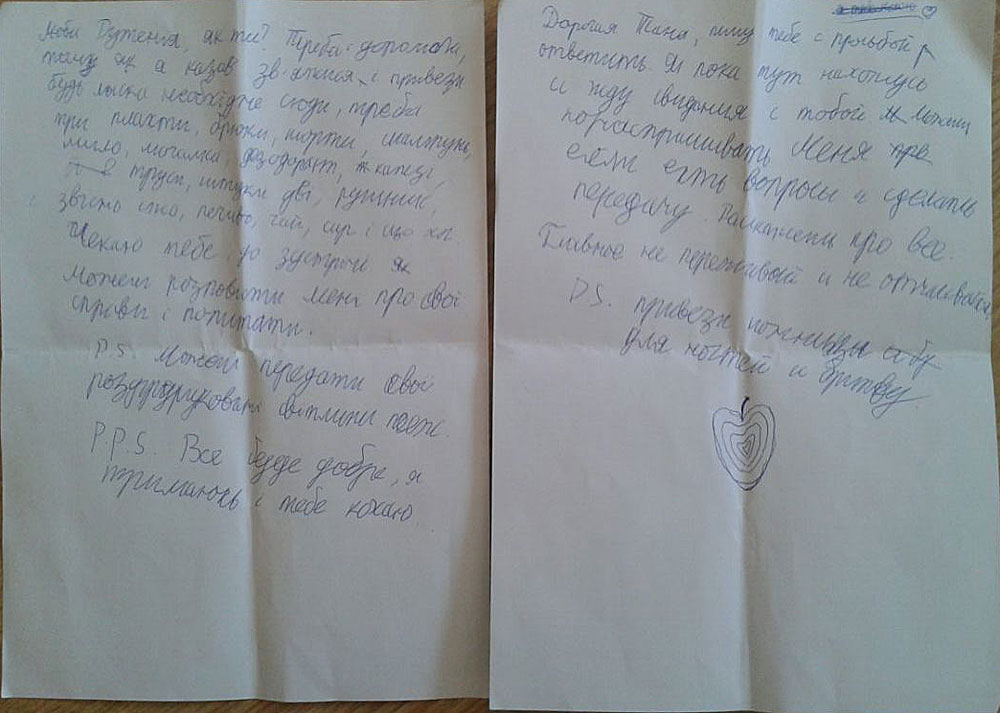 Люба Рутенія, як ти? Треба допомога,
тому як я казав зв'яжися і привези
будь ласка необхідне сюди, треба
три плахти, брюки, шорти, шампунь,
мило, мочалка, дезодорант, капці,
труси, штуки дві, рушник,
звісно сік, печиво, чай, сир і що
Чекаю тебе, до зустрічі як
Можеш розповісти мені про свої
справи і попитати.
P.S. Можеш передати свої
роздруковані світлини теж.
P.P.S. Все буде добре, я
тримаюсь і тебе кохаю
Дорогая Тана, пишу тебе с просьбой
ответить. Я пока тут нахожусь
и жду свидания с тобой Можеш
пораспрашивать меня про
если есть вопросы и сделать
передачу. Расскажеш про все.
Главное не переживай и не отчаивайся
P.S. привези ножницы
для ногтей и бритву